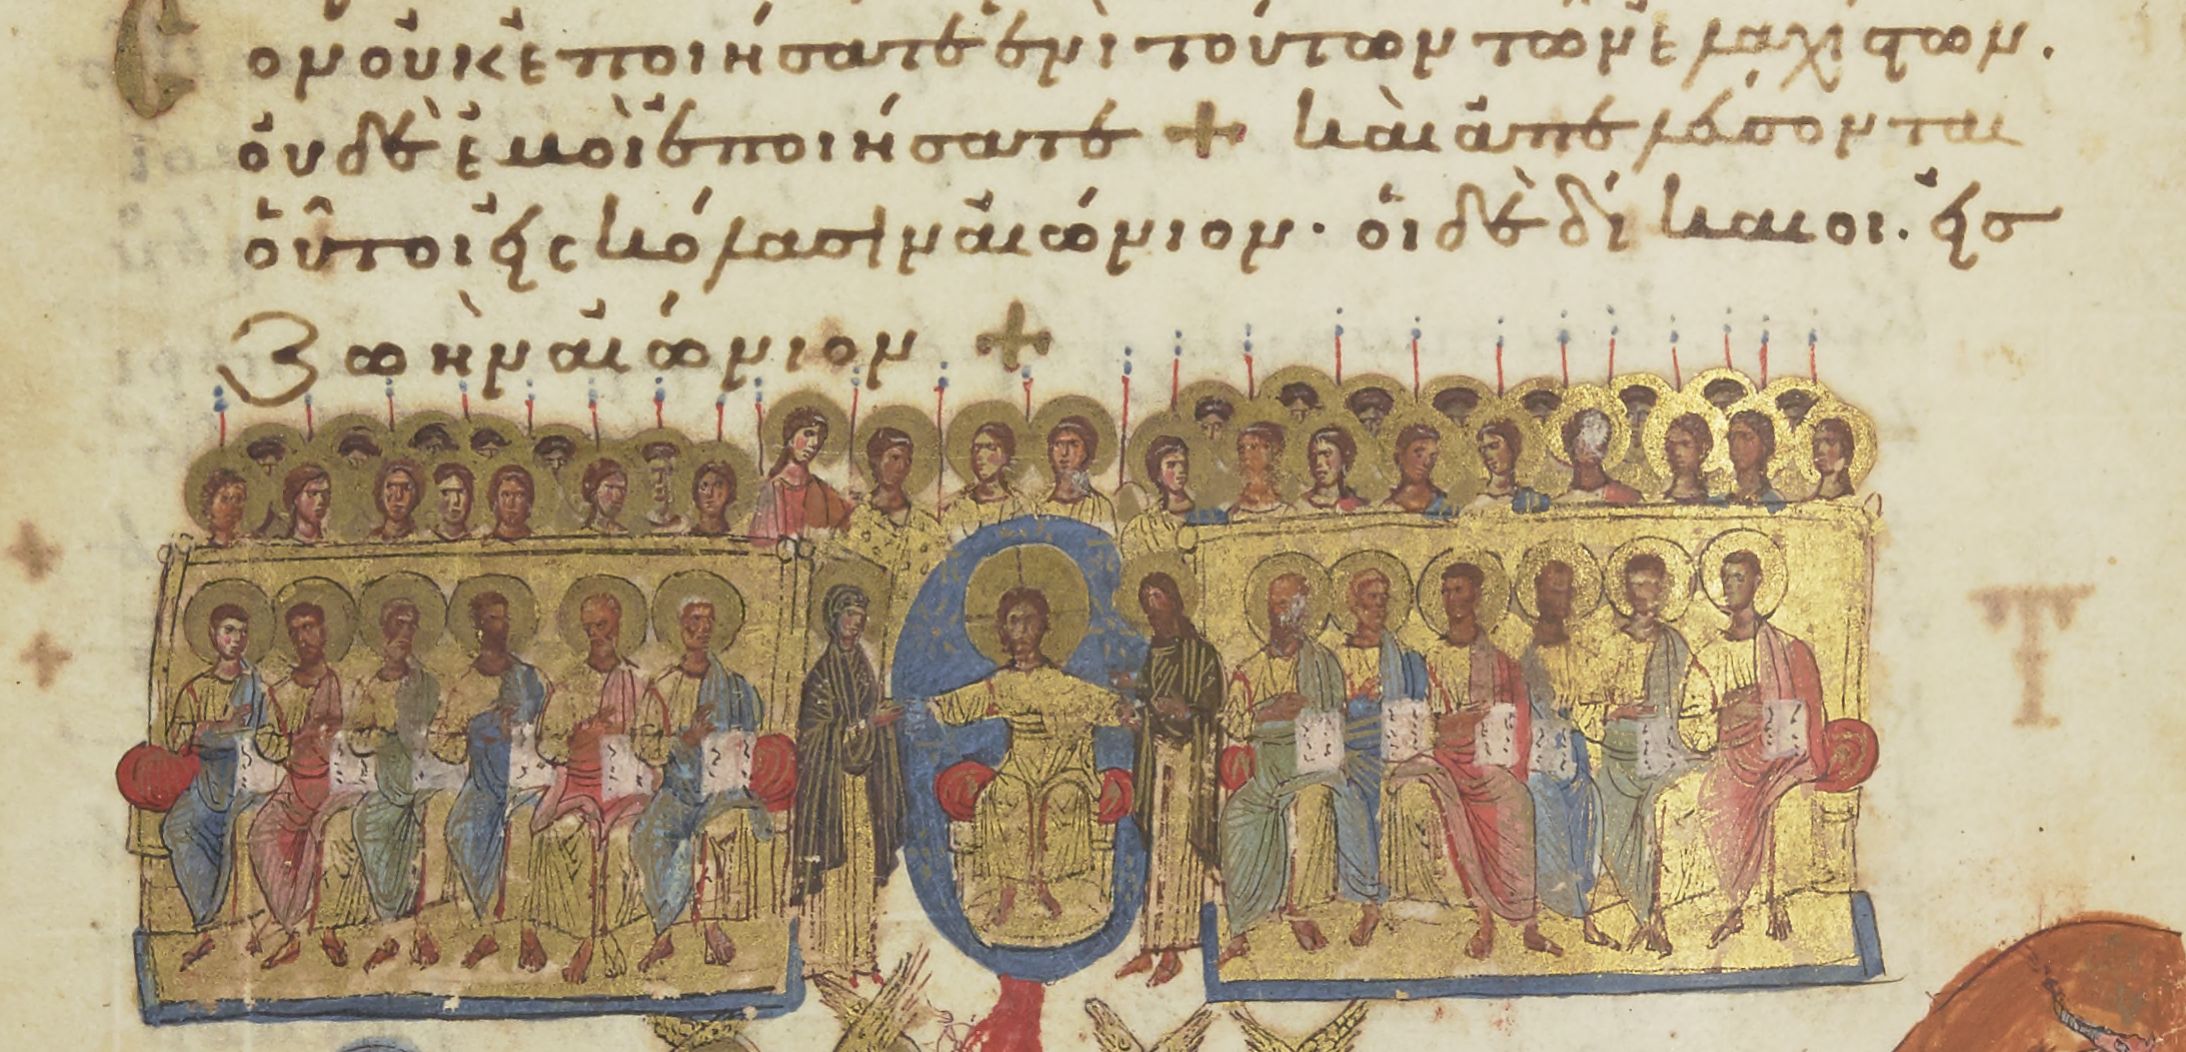 ὁμ οὐκ ἐποιήσατε ἑνὶ τούτων τῶν ἐλαχίστων.
οὐδὲ ἐμοὶ ἐποιήσατε + καὶ ἀπελεύσονται
οὗτοι εἰς κόλασιν αἰώνιον· οἱ δὲ δίκαιοι. εἰσ
ζωὴν αἰώνιον +